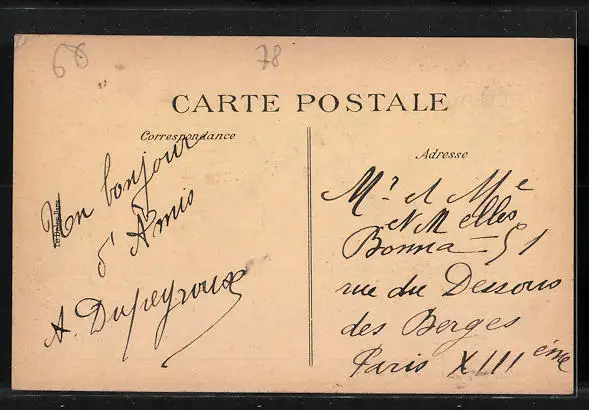 68
78
CARTE POSTALE
Correspondance
Adresse
Un bonjour
d'Amis
A. Dupeyroux
Mr et Me
et Melles
Bonna - 51
rue du Dessous
des Berges
Paris XIII ème